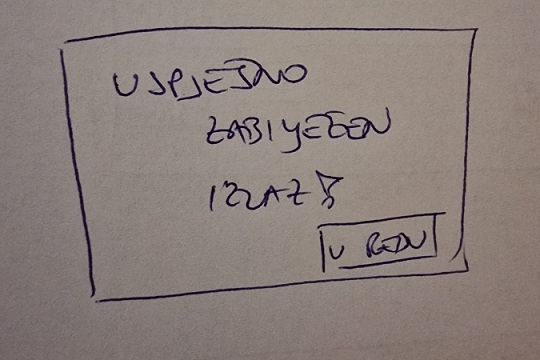 USPJEŠNO
ZABILJEŽEN
IZLAZ
U REDU